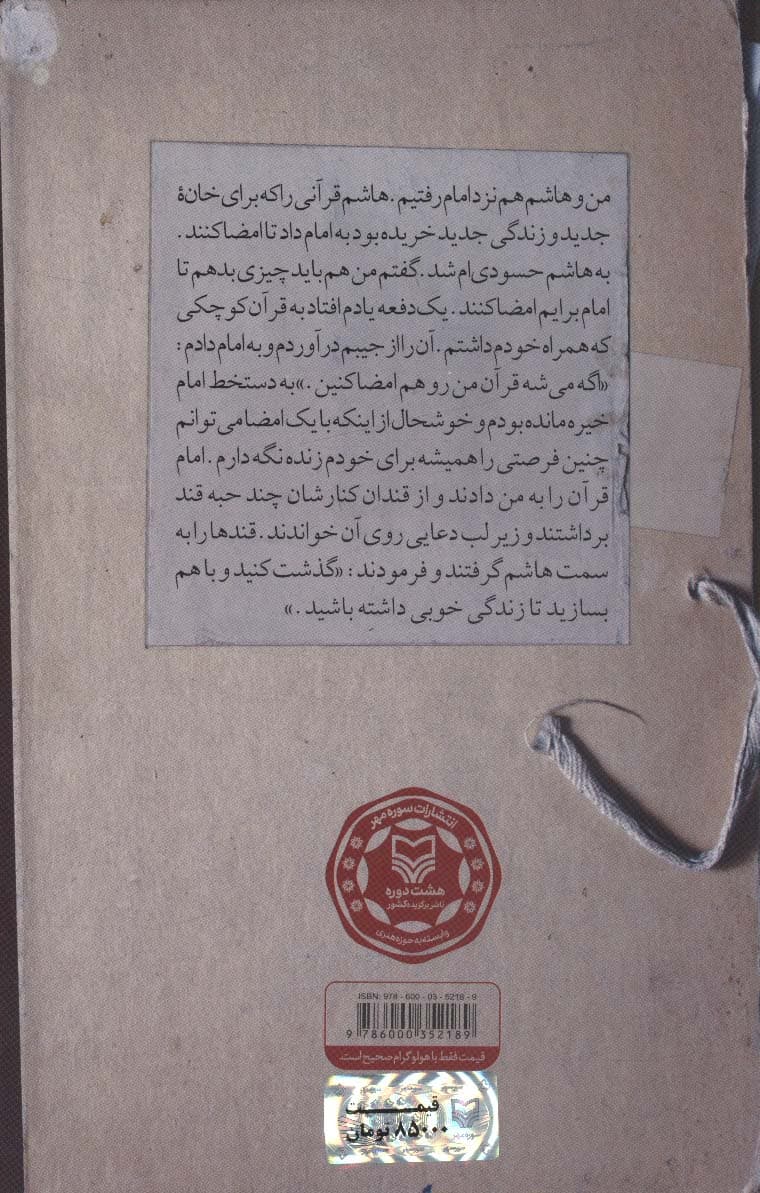 من و هاشم هم نزد امام رفتیم. هاشم قرآنی را که برای خانهٔ
جدید و زندگی جدید خریده بود به امام داد تا امضا کنند.
به هاشم حسودی‌ام شد. گفتم من هم باید چیزی بدهم تا
امام برایم امضا کنند. یک دفعه یادم افتاد به قرآن کوچکی
که همراه خودم داشتم. آن را از جیبم درآوردم و به امام دادم:
«اگه می شه قرآن من رو هم امضا کنین.» به دستخط امام
خیره مانده بودم و خوشحال از اینکه با یک امضا می توانم
چنین فرصتی را همیشه برای خودم زنده نگه دارم. امام
قرآن را به من دادند و از قندان کنارشان چند حبه قند
برداشتند و زیر لب دعایی روی آن خواندند. قندها را به
سمت هاشم گرفتند و فرمودند: «گذشت کنید و با هم
بسازید تا زندگی خوبی داشته باشید.»
انتشارات سوره مهر
هشت دوره
ناشر برگزیده کشور
وابسته به حوزه هنری
ISBN: 978 - 600 - 03 - 5218 - 9
9 786000 352189
قیمت فقط با هولوگرام صحیح است.
قیمت
۸۵۰۰۰ تومان
سوره مهر